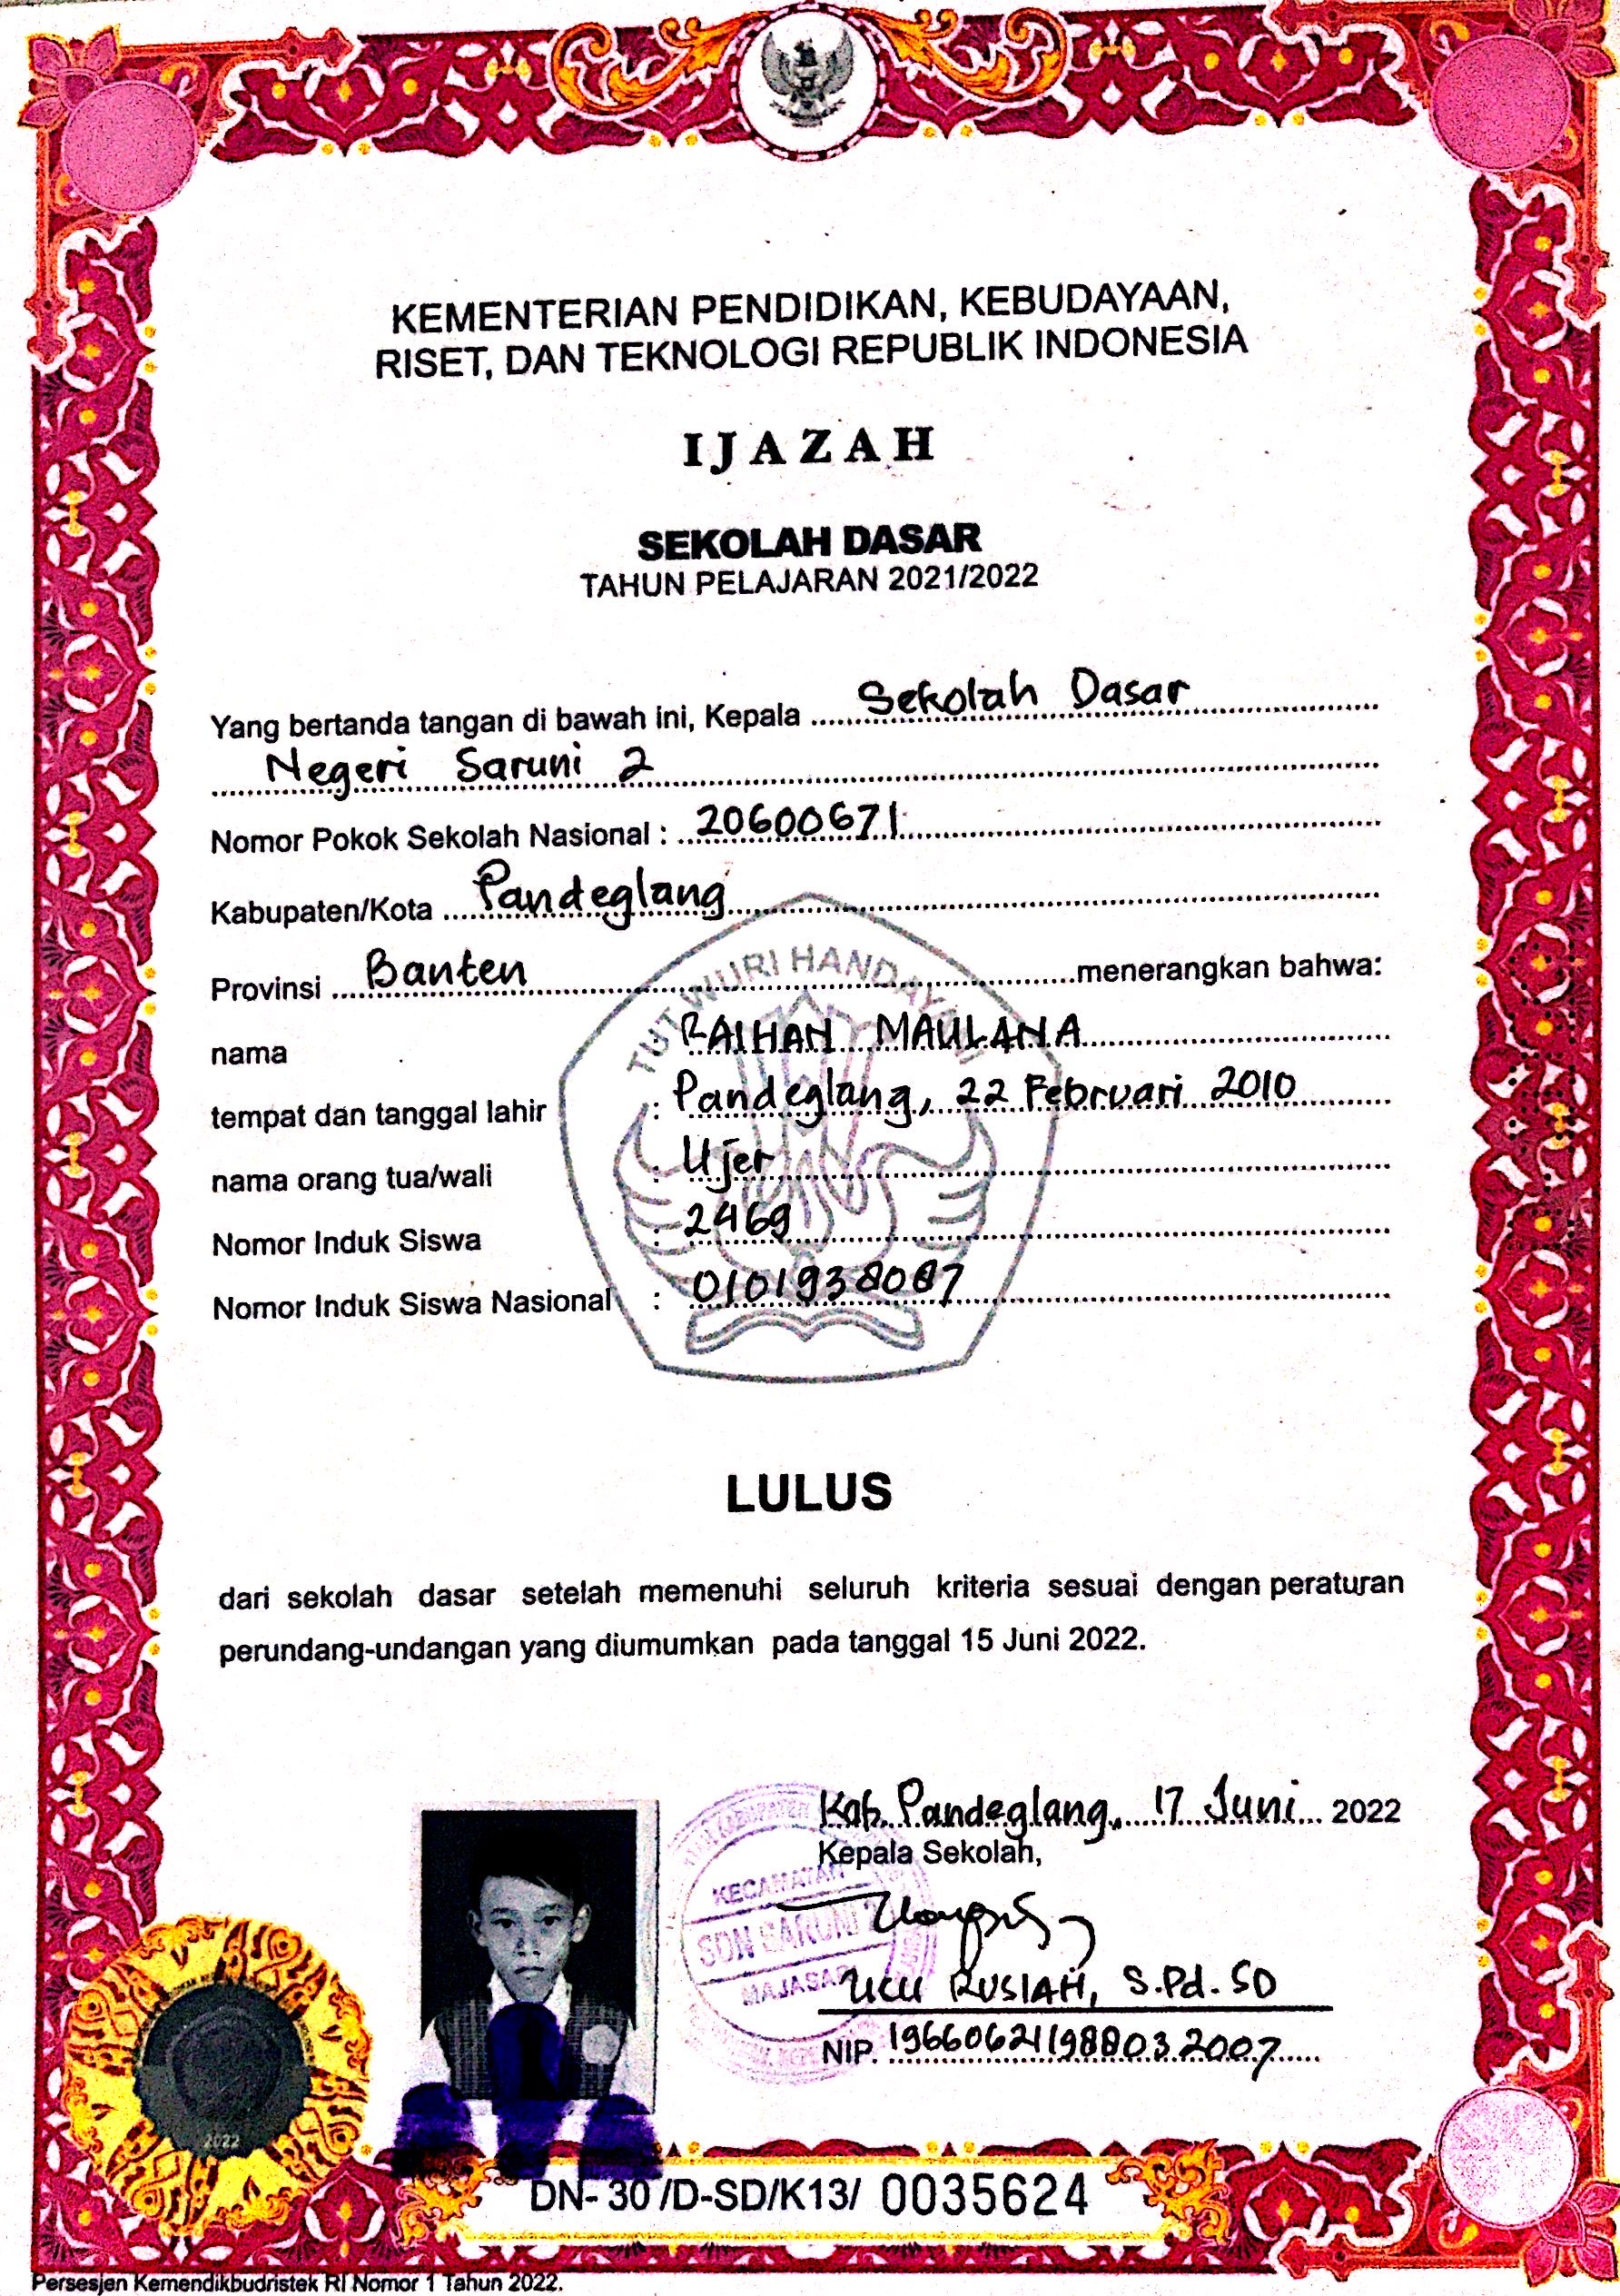 KEMENTERIAN PENDIDIKAN, KEBUDAYAAN,
RISET, DAN TEKNOLOGI REPUBLIK INDONESIA
IJAZAH
SEKOLAH DASAR
TAHUN PELAJARAN 2021/2022
Yang bertanda tangan di bawah ini, Kepala Sekolah Dasar
Negeri Saruni 2
Nomor Pokok Sekolah Nasional : 20600671
Kabupaten/Kota Pandeglang
Provinsi Banten menerangkan bahwa:
TUT WURI HANDAYANI
nama RAIHAN MAULANA
tempat dan tanggal lahir : Pandeglang, 22 Februari 2010
nama orang tua/wali : Ujer
Nomor Induk Siswa : 2469
Nomor Induk Siswa Nasional : 0101938087
LULUS
dari sekolah dasar setelah memenuhi seluruh kriteria sesuai dengan peraturan
perundang-undangan yang diumumkan pada tanggal 15 Juni 2022.
Kab. Pandeglang, 17 Juni 2022
Kepala Sekolah,
KECAMATAN
SDN SARUNI 2
MAJASARI
UCU RUSIAH, S.Pd.SD
NIP. 196606211988032007
2022
DN- 30 /D-SD/K13/ 0035624
Persesjen Kemendikbudristek RI Nomor 1 Tahun 2022.